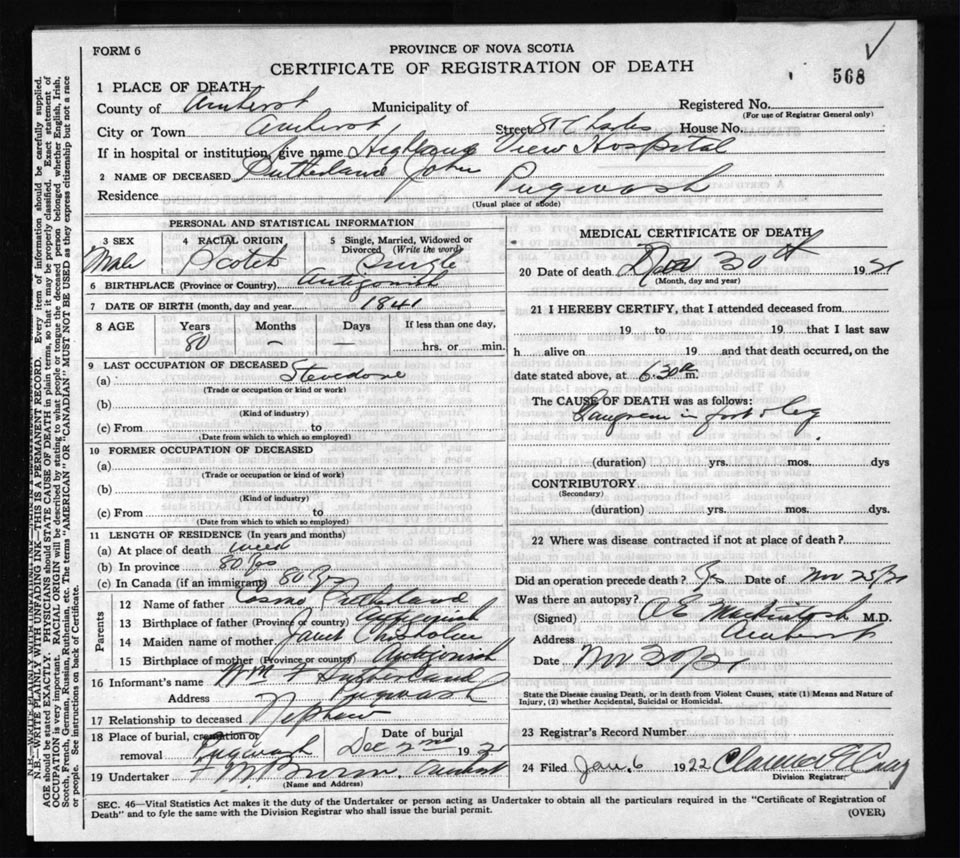 FORM 6
PROVINCE OF NOVA SCOTIA
CERTIFICATE OF REGISTRATION OF DEATH
568
1 PLACE OF DEATH
County of Amherst Municipality of Registered No.
(For use of Registrar General only)
City or Town Amherst Street St Charles House No.
If in hospital or institution, give name Highland View Hospital
2 NAME OF DECEASED Sutherland John
Residence Pugwash
(Usual place of abode)
PERSONAL AND STATISTICAL INFORMATION
3 SEX 4 RACIAL ORIGIN 5 Single, Married, Widowed or Divorced (Write the word)
Male Scotch Single
6 BIRTHPLACE (Province or Country) Antigonish
7 DATE OF BIRTH (month, day and year) 1841
8 AGE Years Months Days If less than one day,
80 — — hrs. or min.
9 LAST OCCUPATION OF DECEASED
(a) Stevedore
(Trade or occupation or kind or work)
(b)
(Kind of industry)
(c) From to
(Date from which to which so employed)
10 FORMER OCCUPATION OF DECEASED
(a)
(Trade or occupation or kind of work)
(b)
(Kind of industry)
(c) From to
(Date from which to which so employed)
11 LENGTH OF RESIDENCE (In years and months)
(a) At place of death week
(b) In province 80 Yrs
(c) In Canada (if an immigrant) 80 Yrs
Parents
12 Name of father Cosmo Sutherland
13 Birthplace of father (Province or country) Antigonish
14 Maiden name of mother Janet Chisholm
15 Birthplace of mother (Province or country) Antigonish
16 Informant's name Wm F Sutherland
Address Pugwash
17 Relationship to deceased Nephew
18 Place of burial, cremation or removal Pugwash Date of burial Dec 2nd 1921
19 Undertaker Amherst
(Name and Address)
MEDICAL CERTIFICATE OF DEATH
20 Date of death 30th 1921
(Month, day and year)
21 I HEREBY CERTIFY, that I attended deceased from
19 to 19 that I last saw
h alive on 19 and that death occurred, on the
date stated above, at 6.30 a m.
The CAUSE OF DEATH was as follows:
Gangrene in foot & leg
(duration) yrs. mos. dys
CONTRIBUTORY
(Secondary)
(duration) yrs. mos. dys.
22 Where was disease contracted if not at place of death?
Did an operation precede death? Yes Date of Nov 25/21
Was there an autopsy?
(Signed) M.D.
Address Amherst
Date Nov 30/21
State the Disease causing Death, or in death from Violent Causes, state (1) Means and Nature of
Injury, (2) whether Accidental, Suicidal or Homicidal.
23 Registrar's Record Number
24 Filed Jan. 6 1922 Clarence
Division Registrar
SEC. 46—Vital Statistics Act makes it the duty of the Undertaker or person acting as Undertaker to obtain all the particulars required in the "Certificate of Registration of
Death" and to fyle the same with the Division Registrar who shall issue the burial permit.
(OVER)
N.B.—WRITE PLAINLY WITH UNFADING INK—THIS IS A PERMANENT RECORD. Every item of information should be carefully supplied.
AGE should be stated EXACTLY. PHYSICIANS should STATE CAUSE OF DEATH in plain terms, so that it may be properly classified. Exact statement of
OCCUPATION is very important. RACIAL ORIGIN will be described by stating to what people or tongue the deceased person belonged whether English, Irish,
Scotch, French, German, Russian, Ruthenian, etc. The terms "AMERICAN" OR "CANADIAN" MUST NOT BE USED as they express citizenship but not a race
or people. See instructions on back of Certificate.